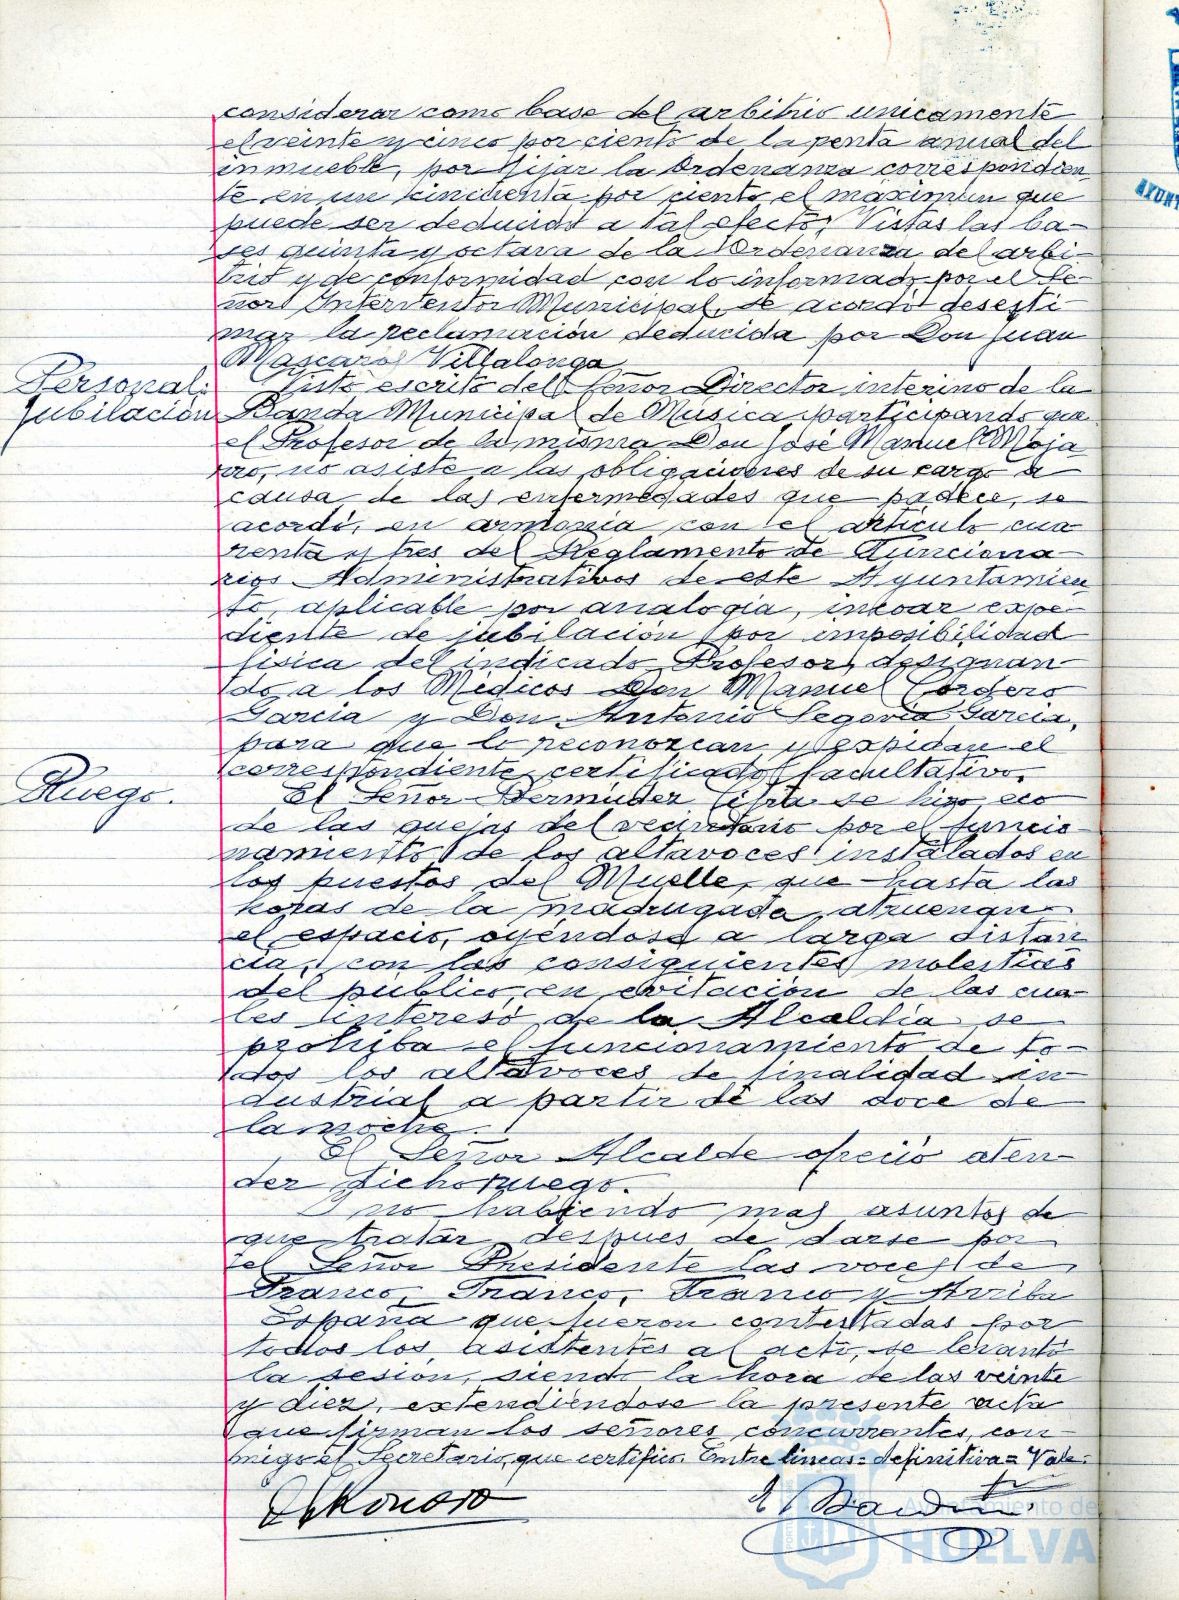 considerar como base del arbitrio unicamente
el veinte y cinco por ciento de la renta anual del
inmueble, por fijar la Ordenanza correspondien-
te en un cincuenta por ciento el maximun que
puede ser deducido a tal efecto; Vistas las ba-
ses quinta y octava de la Ordenanza del arbi-
trio y de conformidad con lo informado por el Se-
ñor Interventor Municipal, se acordó desesti-
mar la reclamación deducida por Don Juan
Mascaros Villalonga.
Personal:
Jubilación
Visto escrito del Señor Director interino de la
Banda Municipal de Musica participando que
el Profesor de la misma Don José Manuel Moja
rro, no asiste a las obligaciones de su cargo a
causa de las enfermedades que padece, se
acordó, en armonia con el articulo cua
renta y tres del Reglamento de Funciona-
rios Administrativos de este Ayuntamien
to, aplicable por analogia, incoar expe-
diente de jubilación por imposibilidad
fisica del indicado Profesor, designan-
do a los Médicos Don Manuel Cordero
Garcia y Don Antonio Segovia Garcia,
para que lo reconozcan y expidan el
correspondiente certificado facultativo.
Ruego.
El Señor Bermudez Cifra se hizo eco
de las quejas del vecindario por el funcio-
namiento de los altavoces instalados en
los puestos del Muelle, que hasta las
horas de la madrugada atruenan
el espacio, oyéndose a larga distan
cia, con las consiguientes molestias
del publico, en evitación de las cua-
les interesó de la Alcaldía se
prohiba el funcionamiento de to-
dos los altavoces de finalidad in-
dustrial a partir de las doce de
la noche.
El Señor Alcalde ofreció aten-
der dicho ruego.
Y no habiendo mas asuntos de
que tratar, despues de darse por
el Señor Presidente las voces de
Franco, Franco, Franco y Arriba
España que fueron contestadas por
todos los asistentes al acto, se levantó
la sesión, siendo la hora de las veinte
y diez, extendiéndose la presente acta
que firman los señores concurrantes, con-
migo el Secretario, que certifico. Entre lineas = definitiva = Vale.
Ayuntamiento de
HUELVA